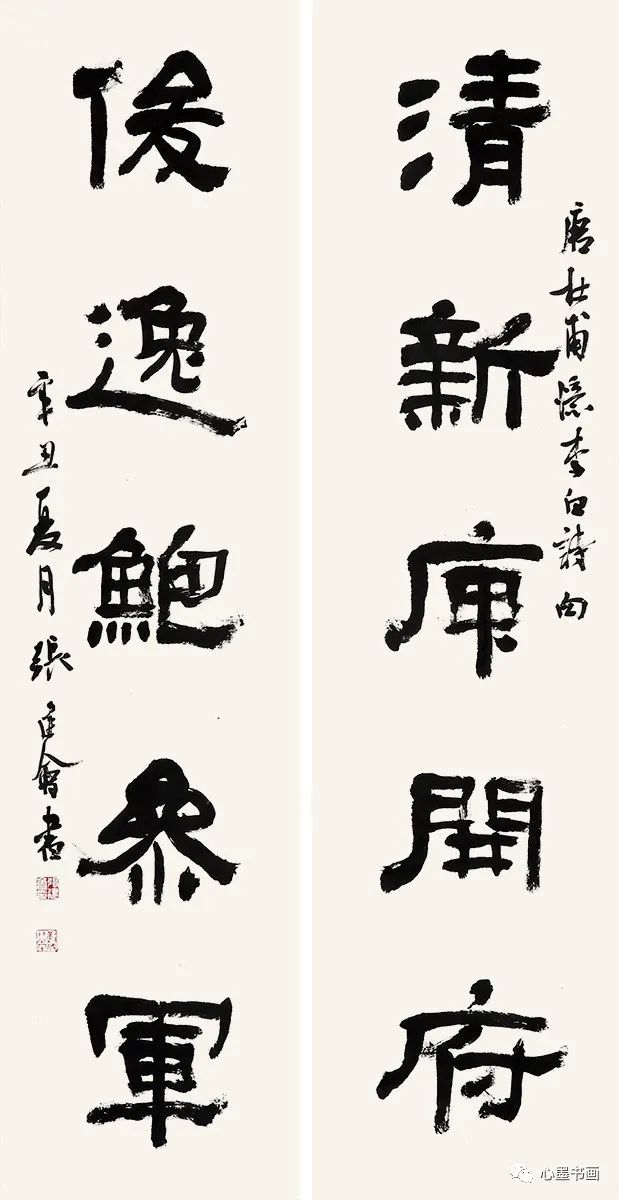 清新庾開府
唐杜甫憶李白詩句
俊逸鮑參軍
辛丑夏月張建會書
心墨书画